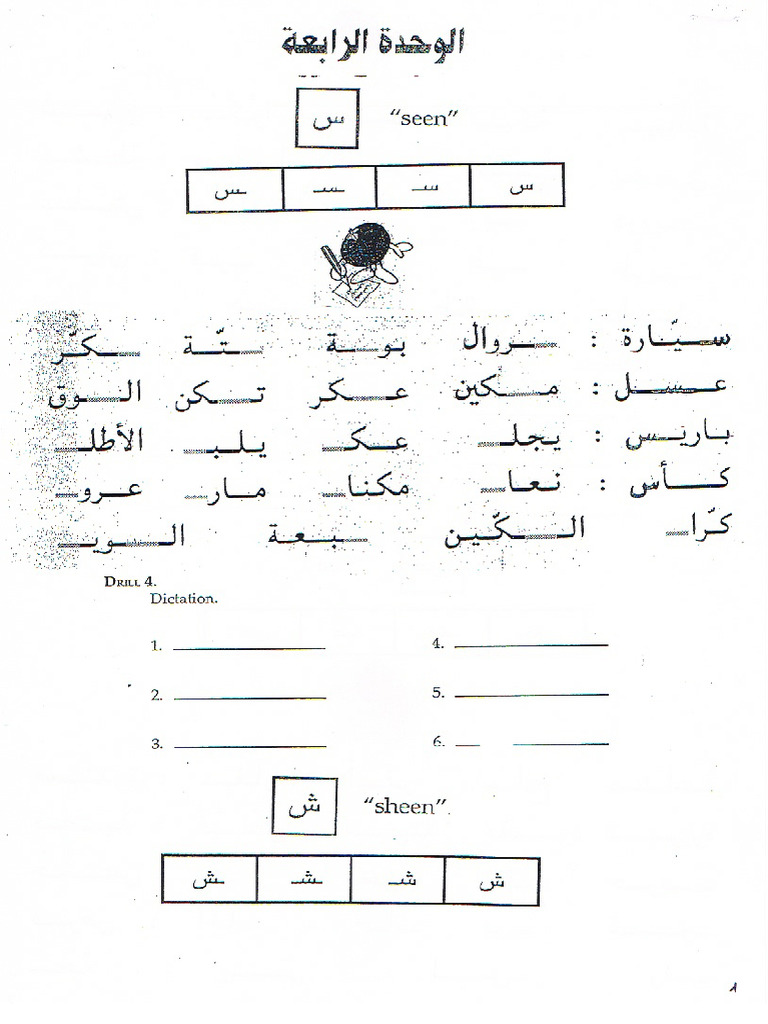 الوحدة الرابعة
س "seen"
س سـ ـسـ ـس
سيّارة : ـــروال بوـــة ـــتّة ـــكّر
عسل : مـــكين عـــكر تـــكن الـــوق
باريس : يجلـــ عكـــ يلبـــ الأطلـــ
كأس : نعاـــ مكناـــ مارـــ عروـــ
كرّاـــ الـــكّين ـــبعة الـــويـــ
DRILL 4.
Dictation.
1. ______ 4. ______
2. ______ 5. ______
3. ______ 6. __ ____
ش "sheen".
ش شـ ـشـ ـش
1